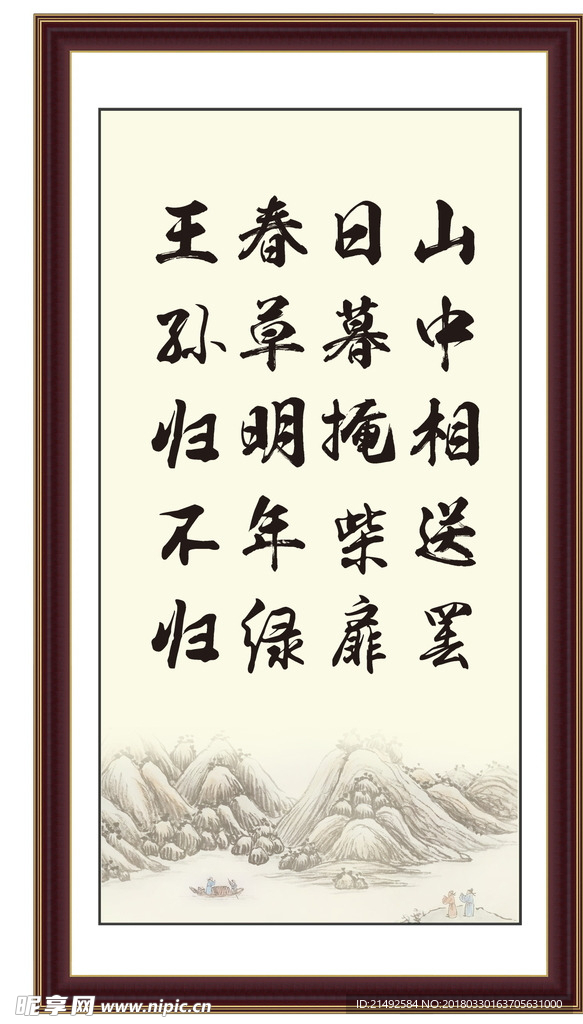 山中相送罢
日暮掩柴扉
春草明年绿
王孙归不归
昵享网 www.nipic.cn
ID:21492584 NO:20180330163705631000